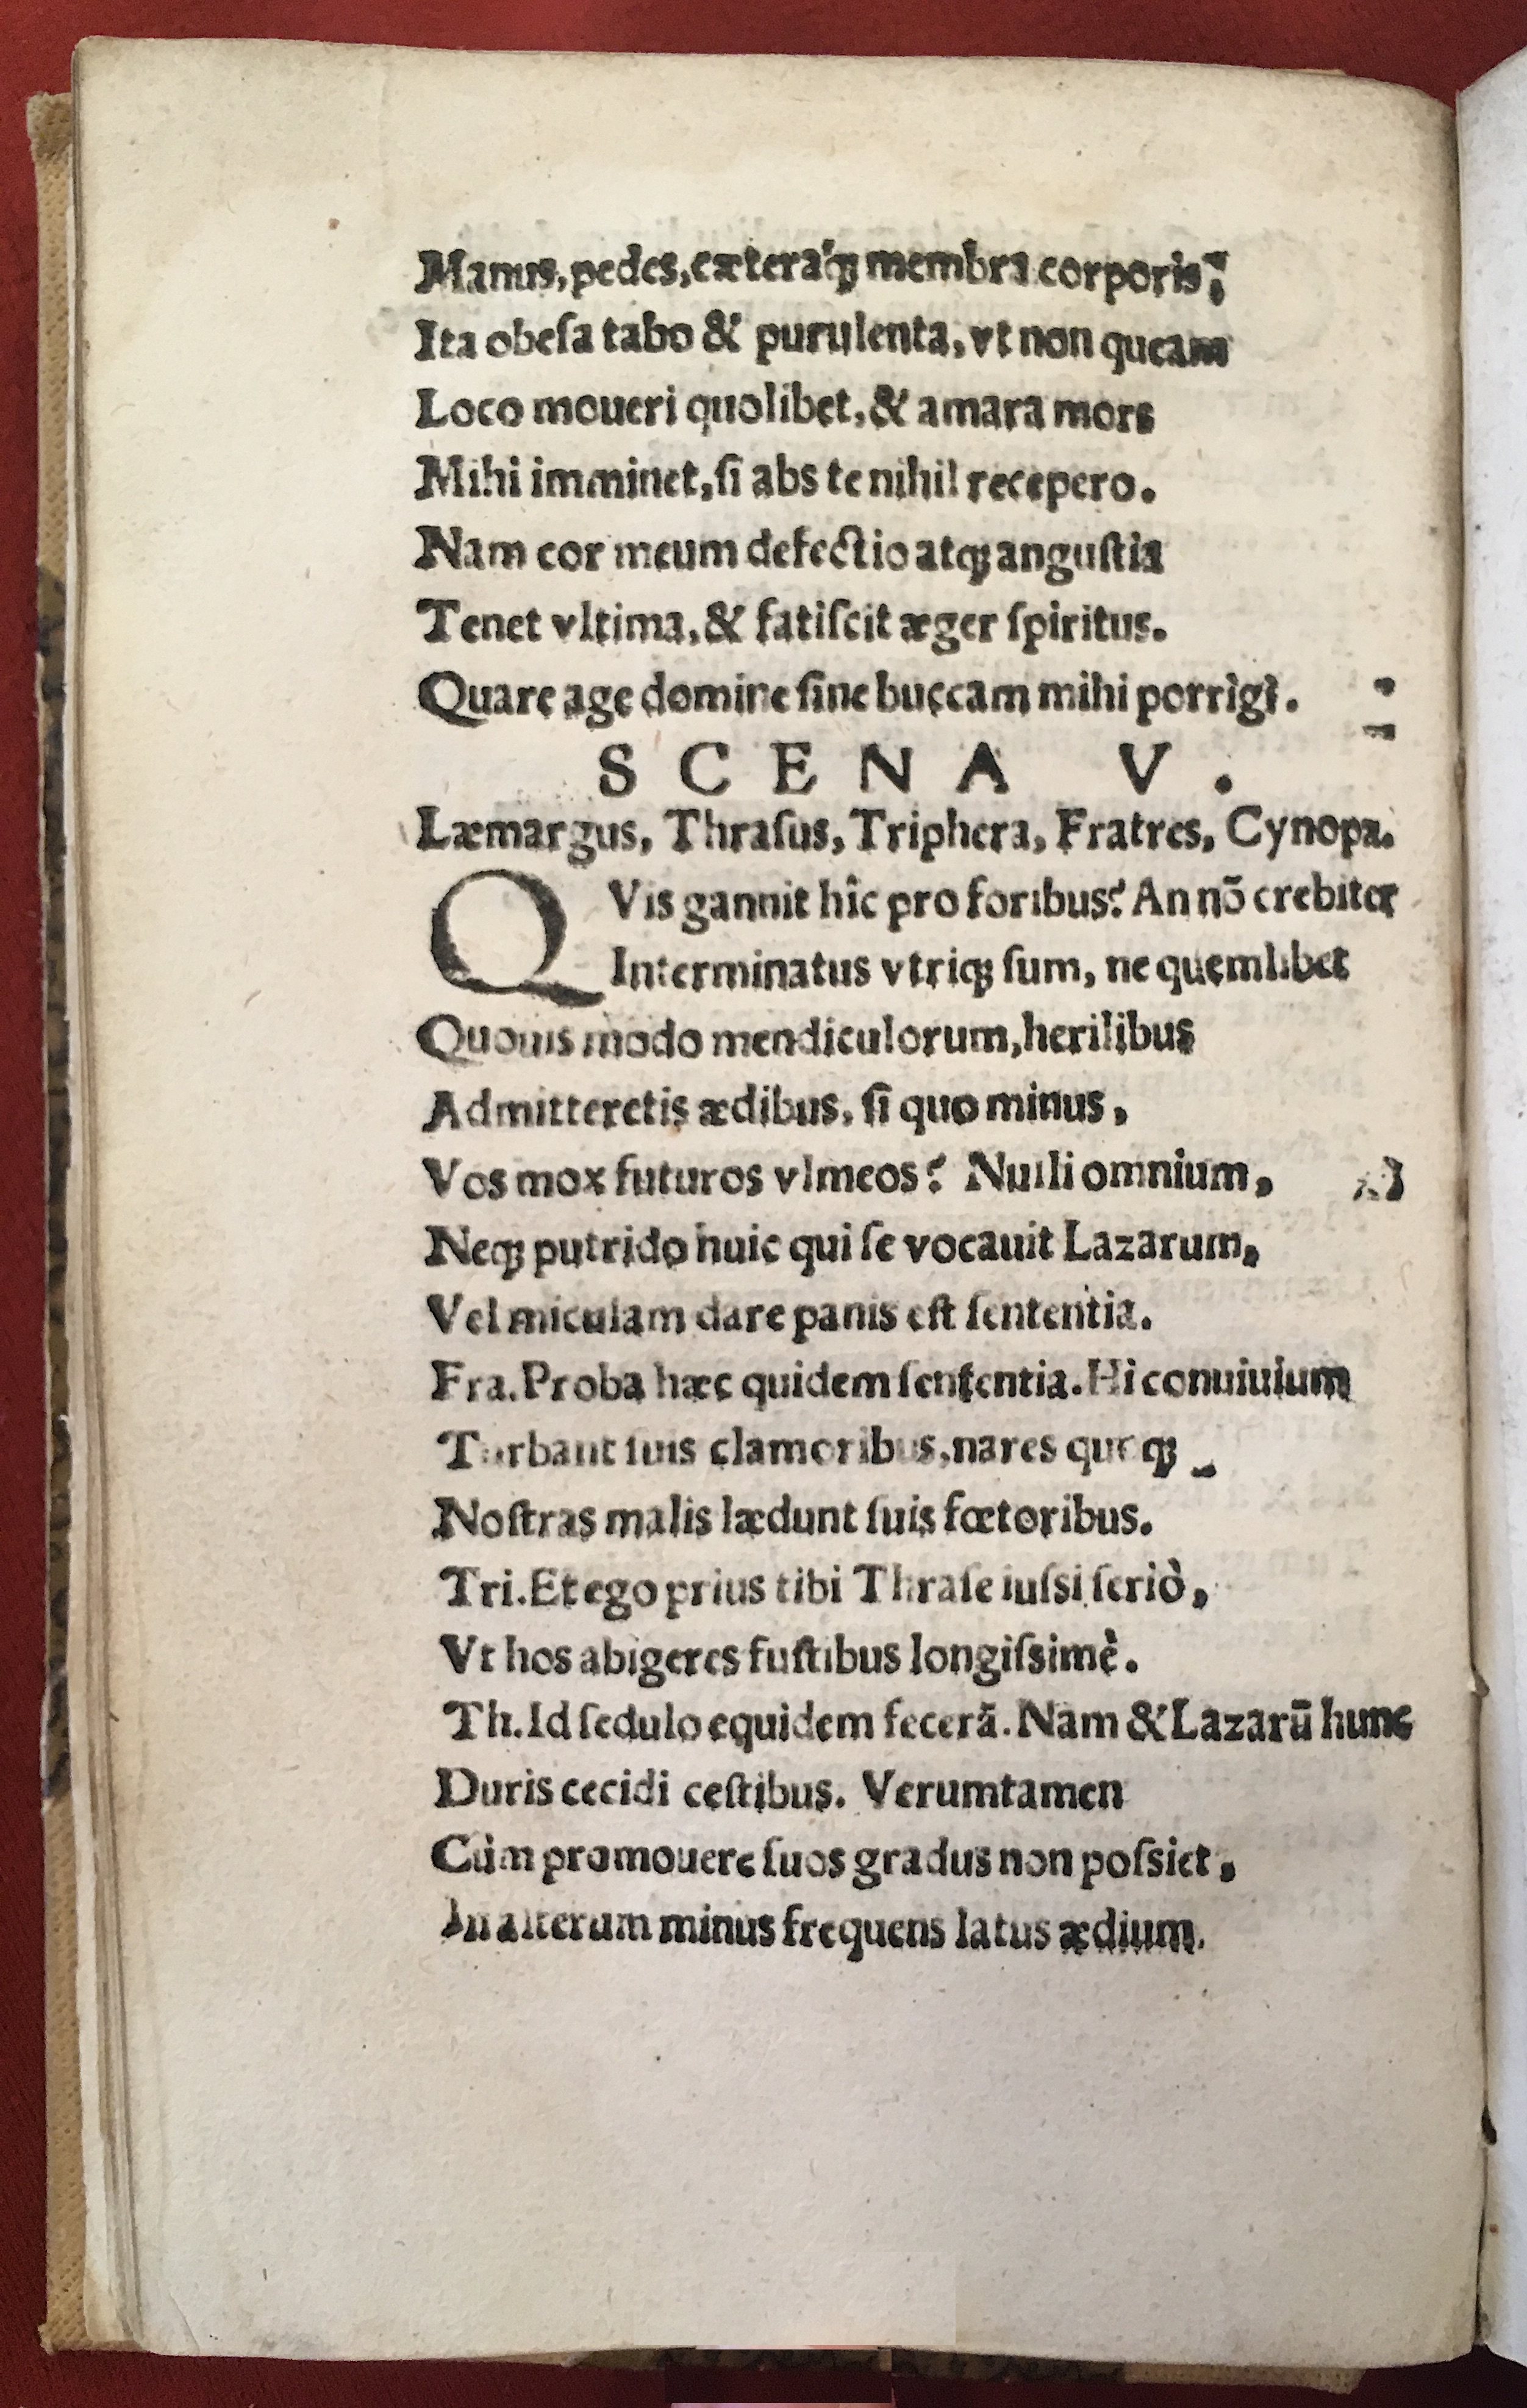 Manus, pedes, cæteraq́ꝫ membra corporis,
Ita obeſa tabo & purulenta, vt non queam
Loco moueri quolibet, & amara mors
Mihi imminet, ſi abs te nihil recepero.
Nam cor meum defectio atqꝫ anguſtia
Tenet vltima, & fatiſcit æger ſpiritus.
Quare age domine ſine buccam mihi porrìgì.
SCENA V.
Læmargus, Thraſus, Triphera, Fratres, Cynopa.
QVis gannit hîc pro foribus? An nō crebiter
Interminatus vtriqꝫ ſum, ne quemlibet
Quouis modo mendiculorum, herilibus
Admitteretis ædibus, ſi quo minus,
Vos mox futuros vlmeos? Nulli omnium,
Neqꝫ putrido huic qui ſe vocauit Lazarum,
Vel miculam dare panis eſt ſententia.
Fra. Proba hæc quidem ſententia. Hi conuiuium
Turbant ſuis clamoribus, nares quoqꝫ
Noſtras malis lædunt ſuis fœtoribus.
Tri. Et ego prius tibi Thraſe iuſsi ſeriò,
Vt hos abigeres fuſtibus longiſsimè.
Th. Id ſedulo equidem fecerā. Nam & Lazarū hunc
Duris cecidi ceſtibus. Verumtamen
Cùm promouere ſuos gradus non poſsiet,
In alterum minus frequens latus ædium.